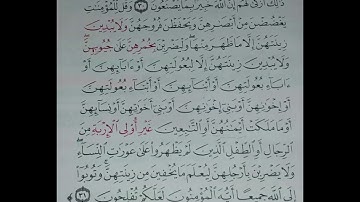 ذَٰلِكَ أَزْكَىٰ لَهُمْ إِنَّ ٱللَّهَ خَبِيرٌۢ بِمَا يَصْنَعُونَ ٣٠ وَقُل لِّلْمُؤْمِنَٰتِ
يَغْضُضْنَ مِنْ أَبْصَٰرِهِنَّ وَيَحْفَظْنَ فُرُوجَهُنَّ وَلَا يُبْدِينَ
زِينَتَهُنَّ إِلَّا مَا ظَهَرَ مِنْهَا وَلْيَضْرِبْنَ بِخُمُرِهِنَّ عَلَىٰ جُيُوبِهِنَّ
وَلَا يُبْدِينَ زِينَتَهُنَّ إِلَّا لِبُعُولَتِهِنَّ أَوْ ءَابَآئِهِنَّ أَوْ
ءَابَآءِ بُعُولَتِهِنَّ أَوْ أَبْنَآئِهِنَّ أَوْ أَبْنَآءِ بُعُولَتِهِنَّ
أَوْ إِخْوَٰنِهِنَّ أَوْ بَنِىٓ إِخْوَٰنِهِنَّ أَوْ بَنِىٓ أَخَوَٰتِهِنَّ أَوْ نِسَآئِهِنَّ
أَوْ مَا مَلَكَتْ أَيْمَٰنُهُنَّ أَوِ ٱلتَّٰبِعِينَ غَيْرِ أُو۟لِى ٱلْإِرْبَةِ مِنَ
ٱلرِّجَالِ أَوِ ٱلطِّفْلِ ٱلَّذِينَ لَمْ يَظْهَرُوا۟ عَلَىٰ عَوْرَٰتِ ٱلنِّسَآءِ
وَلَا يَضْرِبْنَ بِأَرْجُلِهِنَّ لِيُعْلَمَ مَا يُخْفِينَ مِن زِينَتِهِنَّ وَتُوبُوٓا۟
إِلَى ٱللَّهِ جَمِيعًا أَيُّهَ ٱلْمُؤْمِنُونَ لَعَلَّكُمْ تُفْلِحُونَ ٣١